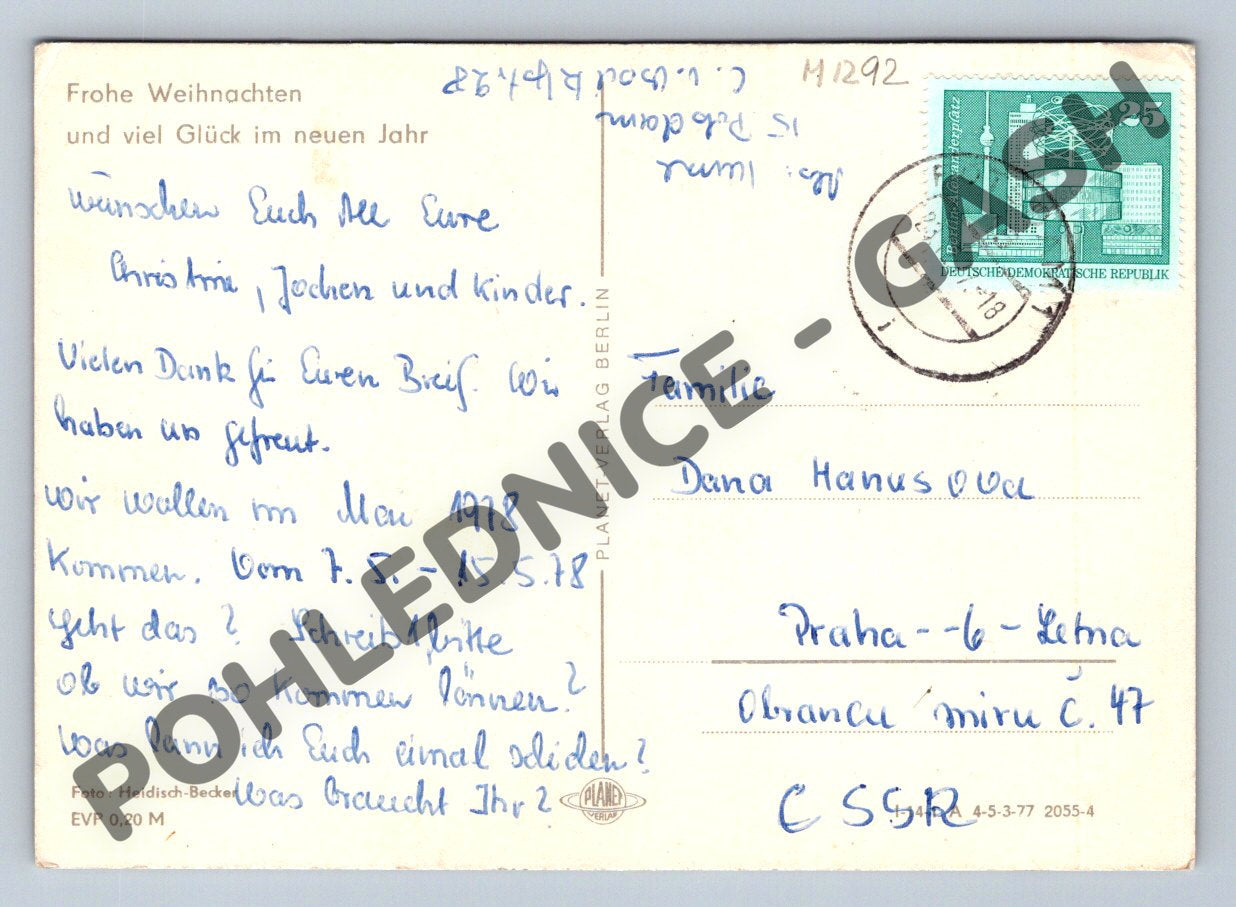 Frohe Weihnachten
und viel Glück im neuen Jahr
wünschen Euch All Eure
Christina, Jochen und Kinder.
Vielen Dank für Euren Breif. Wir
haben uns gefreut.
Wir wollen im Mai 1978
kommen. Vom 7.5. - 15.5.78
geht das? Schreibt bitte
ob wir so kommen können?
Was kann ich Euch eimal schiken?
Was braucht Ihr?
Foto: Heidisch-Becker
EVP 0,20 M
PLANET-VERLAG BERLIN
PLANET
VERLAG
M 1292
Abs:
15 Potsdam
25
Berlin, Alexanderplatz
DEUTSCHE DEMOKRATISCHE REPUBLIK
-18
Familie
Dana Hanusova
Praha - 6 - Letna
Obrancu miru č. 47
CSSR
A 4-5-3-77 2055-4
POHLEDNICE - GASH